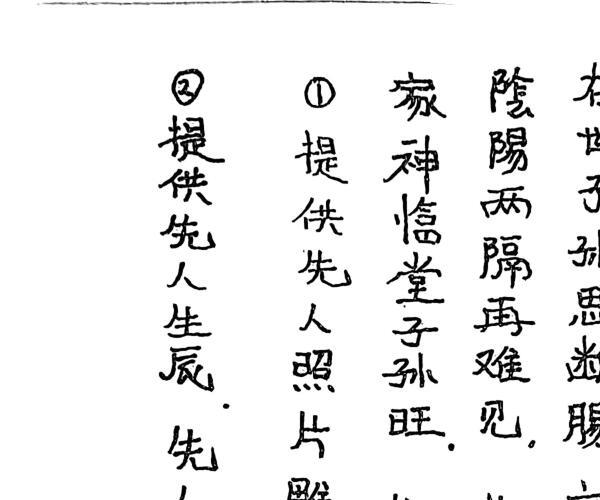 在世子孙思断肠
陰陽两隔再难见.
家神临堂子孙旺.
①提供先人照片雕
②提供先人生辰.先人